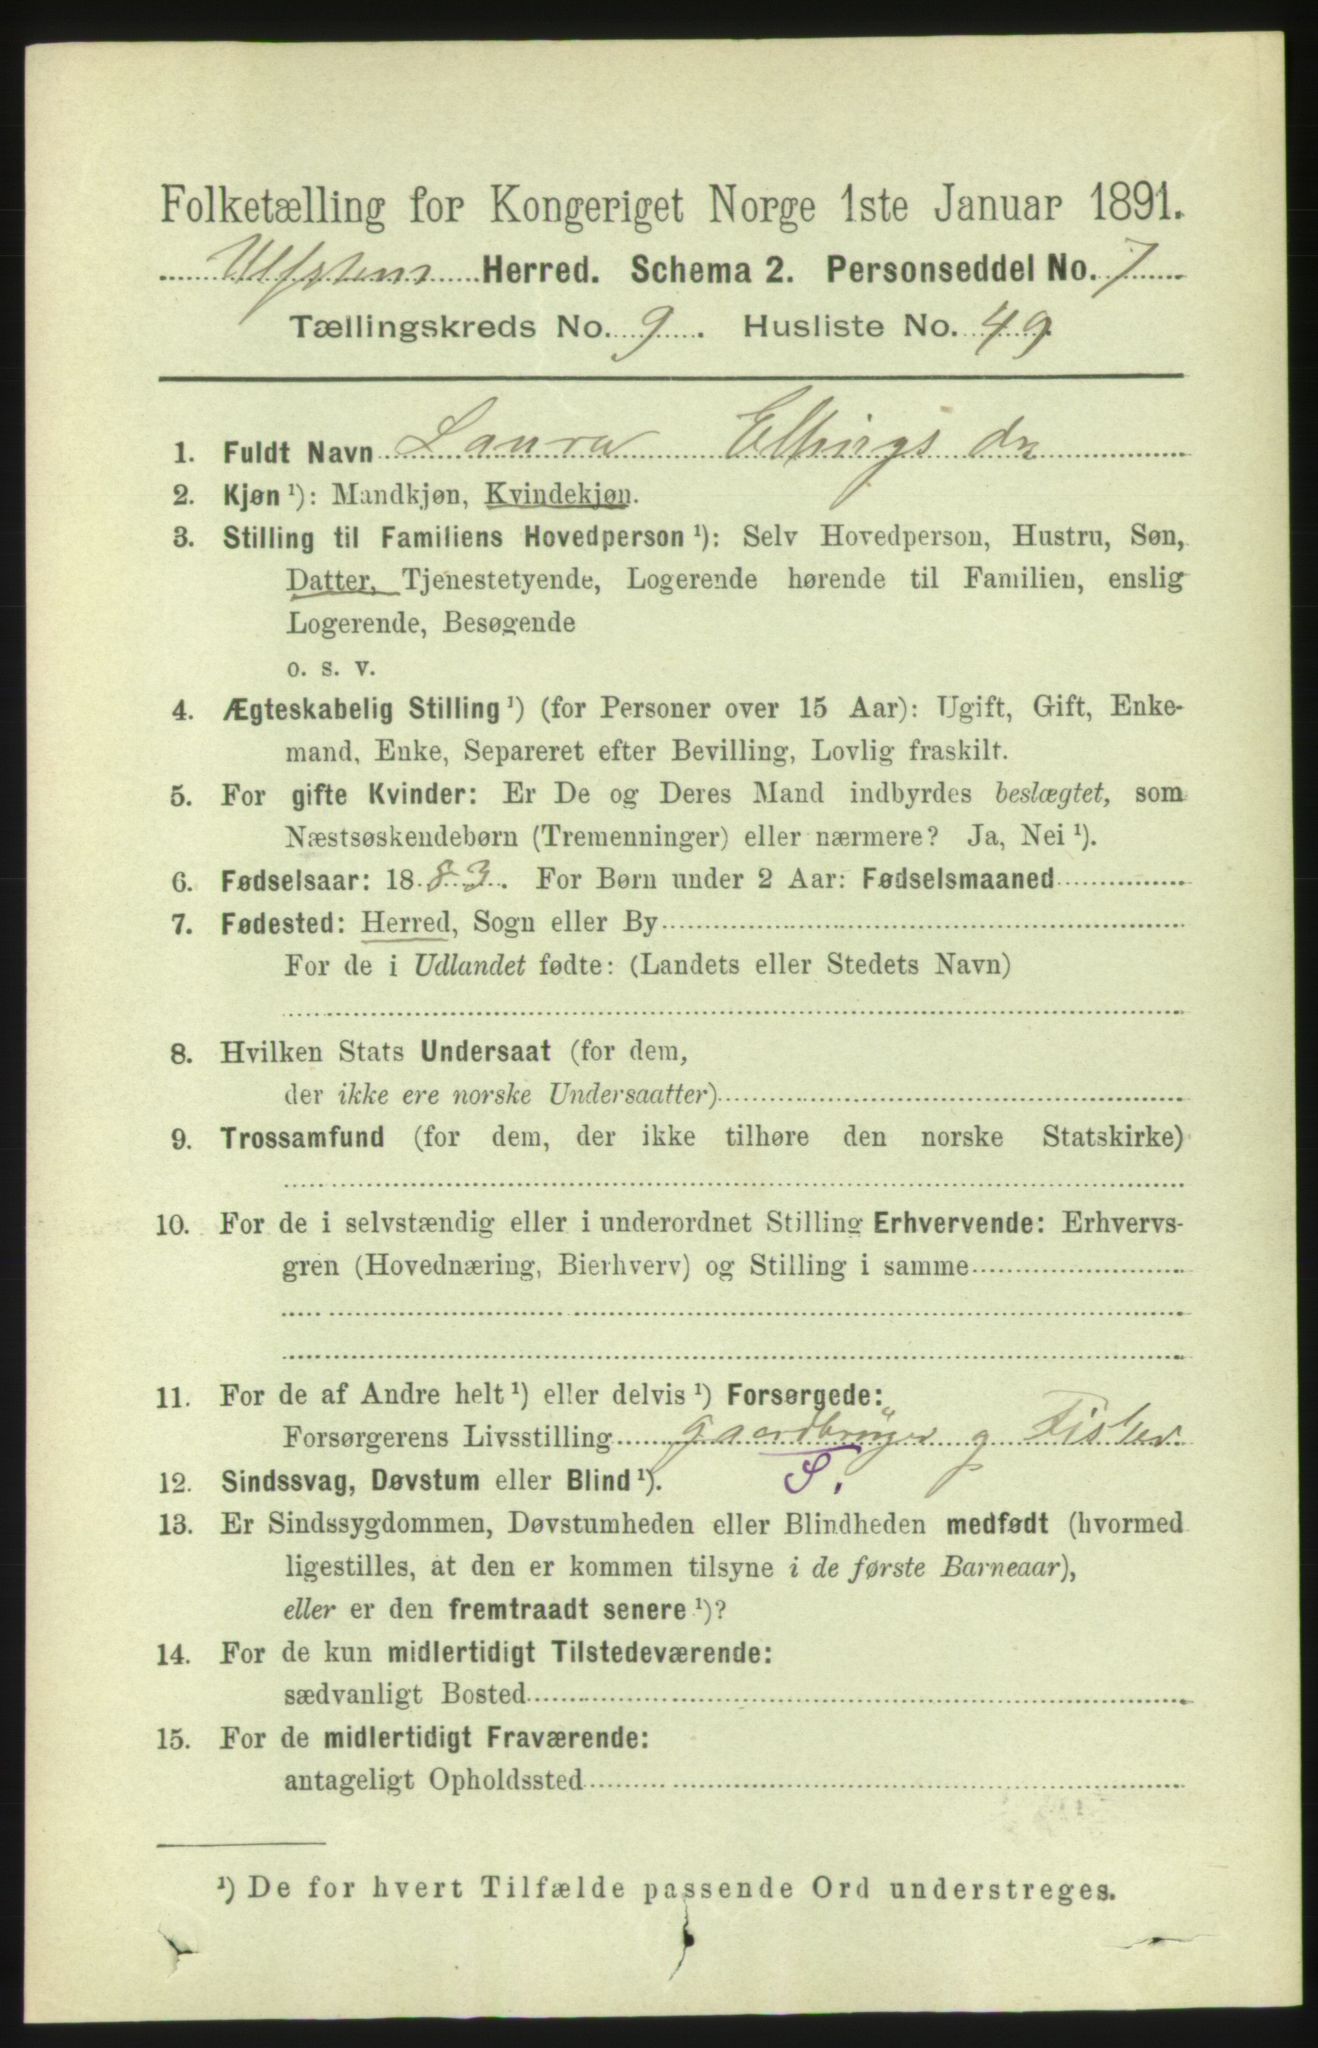 Folketælling for Kongeriget Norge 1ste Januar 1891.
Ulfsten Herred. Schema 2. Personseddel No. 7
Tællingskreds No. 9. Husliste No. 49
1. Fuldt Navn Laura Ellings dr
2. Kjøn ¹): Mandkjøn, Kvindekjøn.
3. Stilling til Familiens Hovedperson ¹): Selv Hovedperson, Hustru, Søn,
Datter, Tjenestetyende, Logerende hørende til Familien, enslig
Logerende, Besøgende
o. s. v.
4. Ægteskabelig Stilling ¹) (for Personer over 15 Aar): Ugift, Gift, Enke-
mand, Enke, Separeret efter Bevilling, Lovlig fraskilt.
5. For gifte Kvinder: Er De og Deres Mand indbyrdes beslægtet, som
Næstsøskendebørn (Tremenninger) eller nærmere? Ja, Nei ¹).
6. Fødselsaar: 1883. For Børn under 2 Aar: Fødselsmaaned
7. Fødested: Herred, Sogn eller By
For de i Udlandet fødte: (Landets eller Stedets Navn)
8. Hvilken Stats Undersaat (for dem,
der ikke ere norske Undersaatter)
9. Trossamfund (for dem, der ikke tilhøre den norske Statskirke)
10. For de i selvstændig eller i underordnet Stilling Erhvervende: Erhvervs-
gren (Hovednæring, Bierhverv) og Stilling i samme
11. For de af Andre helt ¹) eller delvis ¹) Forsørgede:
Forsørgerens Livsstilling gaardbruger g Fisker
12. Sindssvag, Døvstum eller Blind ¹). S.
13. Er Sindssygdommen, Døvstumheden eller Blindheden medfødt (hvormed
ligestilles, at den er kommen tilsyne i de første Barneaar),
eller er den fremtraadt senere ¹)?
14. For de kun midlertidigt Tilstedeværende:
sædvanligt Bosted
15. For de midlertidigt Fraværende:
antageligt Opholdssted
¹) De for hvert Tilfælde passende Ord understreges.